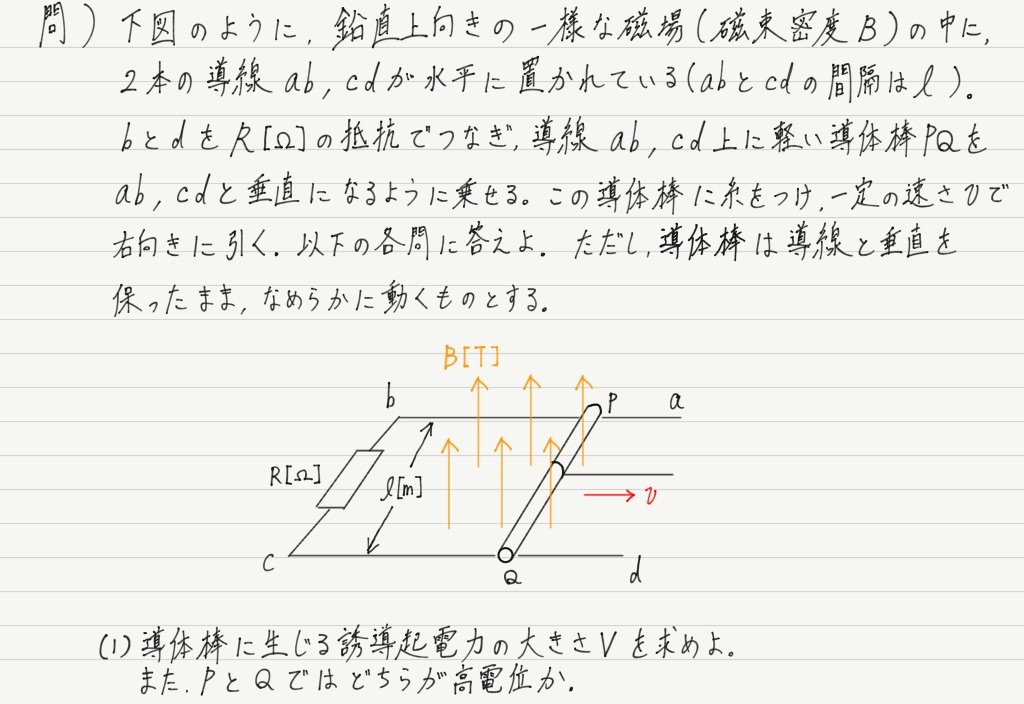 問) 下図のように, 鉛直上向きの一様な磁場(磁束密度B)の中に,
2本の導線ab, cdが水平に置かれている(abとcdの間隔はl)。
bとdをR[Ω]の抵抗でつなぎ, 導線ab, cd上に軽い導体棒PQを
ab, cdと垂直になるように乗せる。この導体棒に糸をつけ, 一定の速さvで
右向きに引く. 以下の各問に答えよ. ただし, 導体棒は導線と垂直を
保ったまま, なめらかに動くものとする。
B[T]
b
P
a
R[Ω]
l[m]
v
c
Q
d
(1) 導体棒に生じる誘導起電力の大きさVを求めよ。
また. PとQではどちらが高電位か.